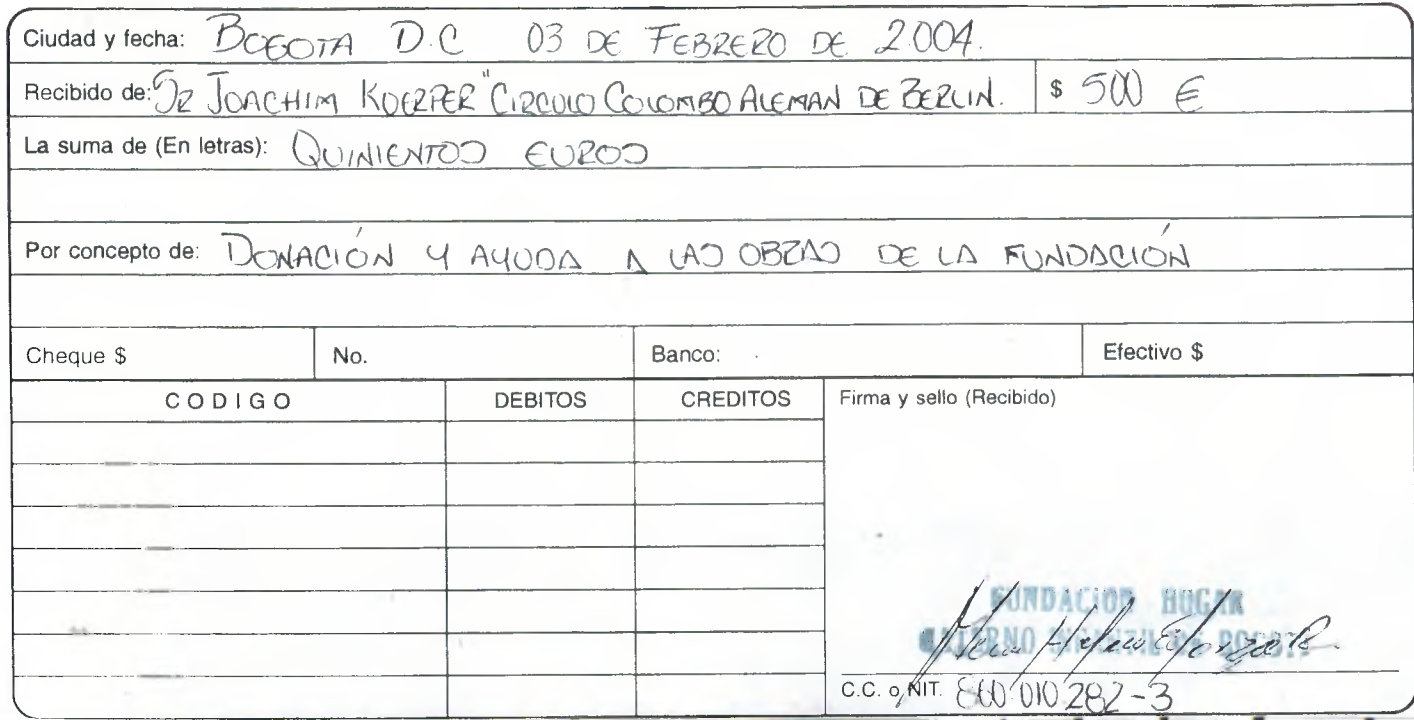 Ciudad y fecha: BOGOTA D.C 03 DE FEBRERO DE 2.004.
Recibido de: SR JOACHIM KOERPER "CIRCULO COLOMBO ALEMAN DE BERLIN. $ 500 €
La suma de (En letras): QUINIENTOS EUROS
Por concepto de: DONACIÓN Y AYUDA A LAS OBRAS DE LA FUNDACIÓN
Cheque $ No. Banco: Efectivo $
CODIGO DEBITOS CREDITOS Firma y sello (Recibido)
FUNDACION HOGAR
MATERNO INFANTIL DE BOGOTA
C.C. o NIT. 860 010 282-3